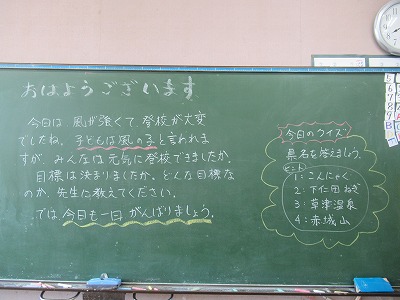 おはようございます
今日は風が強くて登校が大変
でしたね。子どもは風の子と言われま
すが、みんなは元気に登校できましたか。
目標は決まりましたか。どんな目標な
のか、先生に教えてください。
では、今日も一日がんばりましょう。
今日のクイズ
県名を答えましょう。
ヒント
1:こんにゃく
2:下仁田ねぎ
3:草津温泉
4:赤城山